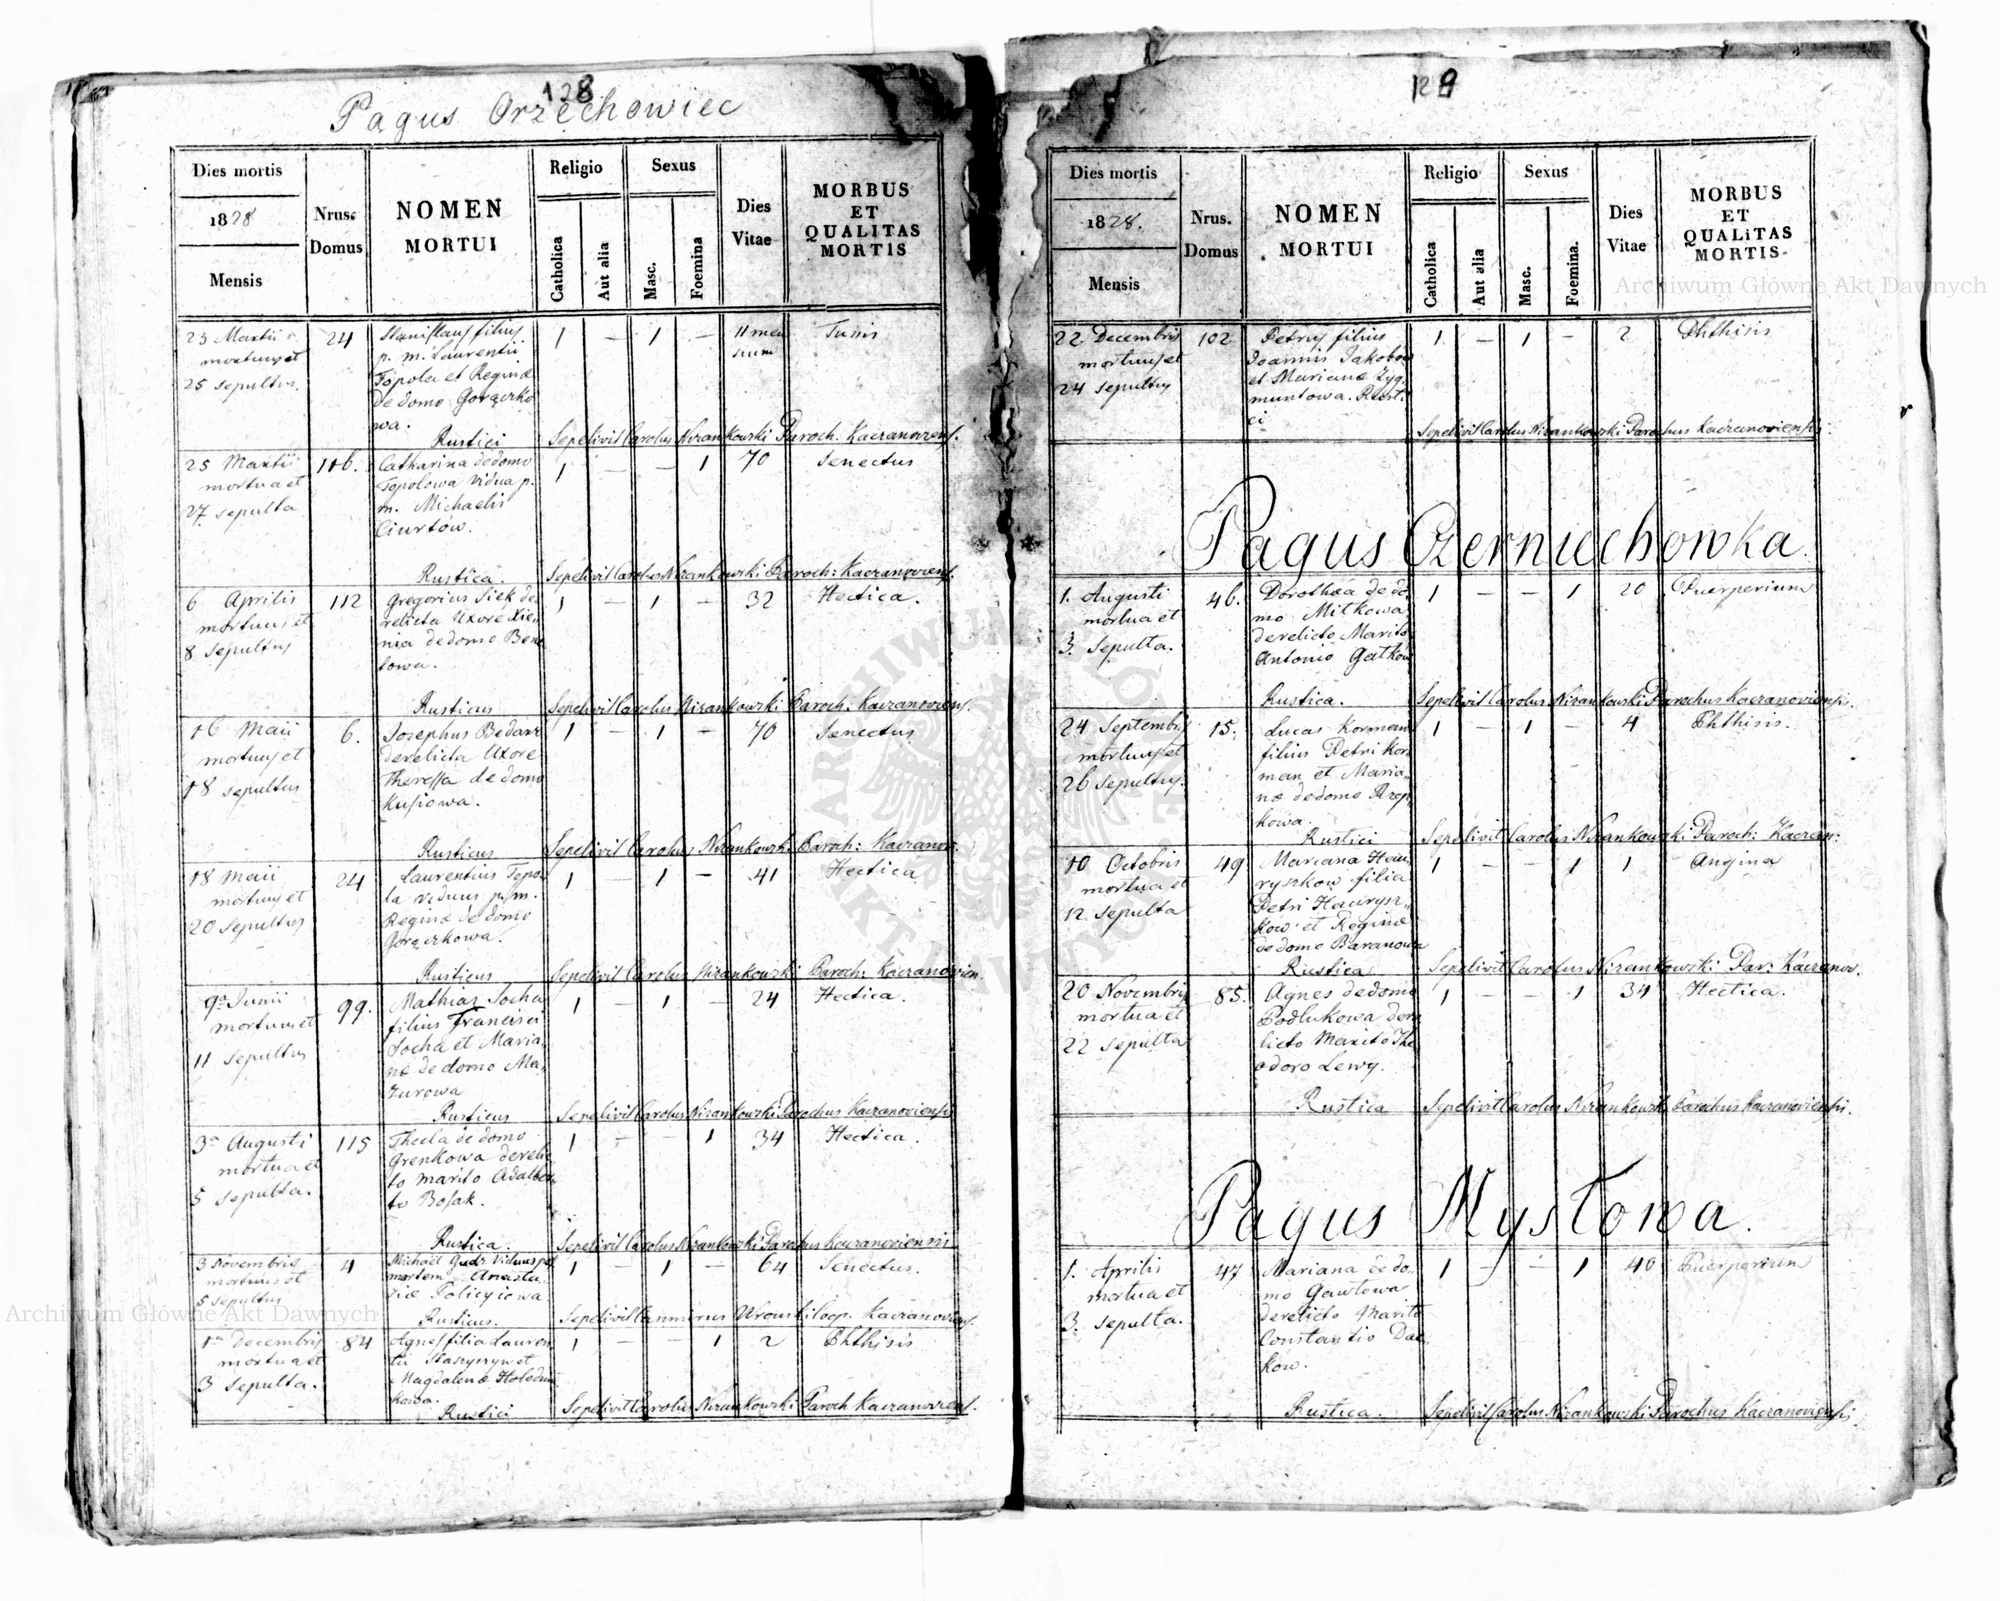 128
Pagus Orzechowiec
Dies mortis
1828
Mensis
Nrus.
Domus
NOMEN
MORTUI
Religio
Catholica
Aut alia
Sexus
Masc.
Foemina
Dies
Vitae
MORBUS
ET
QUALITAS
MORTIS
23 Martii 24 Stanislaus filius 1 — 1 — 11 men Tussis
mortuus et p. m. Laurentii sium
25 sepultus. Topola et Reginæ
de domo Gorączko
wa.
Rustici Sepelivit Carolus Nizankowski Paroch. Kaczanoviens.
25 Martii 116. Catharina de domo 1 — — 1 70 Senectus
mortua et Topolowa vidua p.
27 sepulta m. Michaelis
Ciurtów.
Rustica. Sepelivit Carolus Nizankowski Paroch: Kaczanoviens.
6 Aprilis 112 Gregorius Siek de 1 — 1 — 32 Hectica.
mortuus et relicta Uxore Xie
8 sepultus nia de domo Bene
towa.
Rusticus Sepelivit Carolus Nizankowski Paroch: Kaczanoviens.
16 Maii 6. Josephus Bednarz 1 — 1 — 70 Senectus
mortuus et derelicta Uxore
18 sepultus Theressa de domo
Kusiowa.
Rusticus Sepelivit Carolus Nizankowski Paroch: Kaczanov.
18 Maii 24 Laurentius Topo 1 — 1 — 41 Hectica
mortuus et la viduus p. m.
20 sepultus Reginæ de domo
Gorączkowa.
Rusticus Sepelivit Carolus Nizankowski Paroch: Kaczanovien.
9a Junii 99. Mathias Socha 1 — 1 — 24 Hectica.
mortuus et filius Francisci
11 sepultus Socha et Maria
næ de domo Ma
zurowa
Rusticus Sepelivit Carolus Nizankowski Parochus Kaczanoviensis
3a Augusti 115 Thecla de domo 1 — — 1 34 Hectica.
mortua et Grenkowa derelic
5 sepulta. to marito Adalber
to Bosak.
Rustica. Sepelivit Carolus Nizankowski Parochus Kaczanoviensis
3 Novembris 4 Michaël Gudz Viduus post 1 — 1 — 64 Senectus.
mortuus et mortem Anasta
5 sepultus siæ Policyiowa
Rusticus. Sepelivit Coop. Kaczanoviens.
1a Decembris 84 Agnes filia Lauren 1 — — 1 2 Phthisis
mortua et tii Staszyszyn et
3 sepulta. Magdalenæ Hołodniu
kowa.
Rustici Sepelivit Carolus Nizankowski Paroch Kaczanoviens.
129
Dies mortis
1828.
Mensis
Nrus.
Domus
NOMEN
MORTUI
Religio
Catholica
Aut alia
Sexus
Masc.
Foemina.
Dies
Vitae
MORBUS
ET
QUALITAS
MORTIS
22 Decembris 102 Petrus filius 1 — 1 — 2 Phthisis
mortuus et Joannis Jakobow
24 sepultus et Marianæ Zyg
muntowa. Rusti
ci
Sepelivit Carolus Nizankowski Parochus Kaczanoviensis.
Pagus Czerniechowka.
1. Augusti 46. Dorothea de do 1 — — 1 20 Puerperium
mortua et mo Mitkowa
3. Sepulta. derelicto Marito
Antonio Gałków
Rustica. Sepelivit Carolus Nizankowski Parochus Kaczanoviensis.
24 Septembris 15. Lucas Korman 1 — 1 — 4 Phthisis.
mortuus et filius Petri Kor
26 sepultus. man et Maria
næ de domo Rzep
kowa.
Rustici Sepelivit Carolus Nizankowski Paroch: Kaczan:
10 Octobris 49. Mariana Haw 1 — — 1 1 Angina
mortua et ryszkow filia
12 sepulta Petri Hawrysz
ków et Reginæ
de domo Baranowa
Rustica Sepelivit Carolus Nizankowski Par: Kaczanov.
20 Novembris 85. Agnes de domo 1 — — 1 34 Hectica.
mortua et Podlukowa dere
22 sepulta licto Marito The
odoro Lewy.
Rustica Sepelivit Carolus Nizankowski Parochus Kaczanoviensis.
Pagus Mysłowa.
1. Aprilis 47 Mariana de do 1 — — 1 40 Puerperium
mortua et mo Gawłowa
3. sepulta. derelicto Marito
Constantio Dac
ków.
Rustica. Sepelivit Carolus Nizankowski Parochus Kaczanoviensis.
Archiwum Główne Akt Dawnych
Archiwum Główne Akt Dawnych
ARCHIWUM GŁÓWNE AKT DAWNYCH